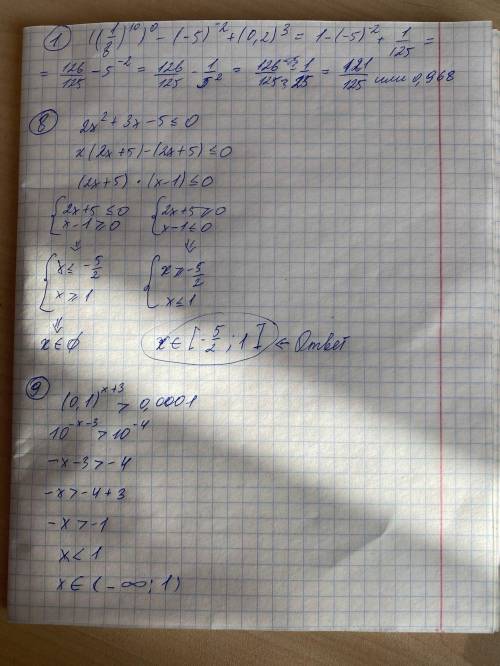 1 ((1/8)^10)^0 - (-5)^-2 + (0,2)^3 = 1 - (-5)^-2 + 1/125 =
= 126/125 - 5^-2 = 126/125 - 1/5^2 = 126/125 - 1/25 = 121/125 или 0,968
8 2x² + 3x - 5 ≤ 0
x(2x+5) - (2x+5) ≤ 0
(2x+5) · (x-1) ≤ 0
{2x+5 ≤ 0 {2x+5 ≥ 0
x-1 ≥ 0 x-1 ≤ 0
⇓ ⇓
{x ≤ -5/2 {x ≥ -5/2
x ≥ 1 x ≤ 1
⇓
x ∈ ∅ x ∈ [-5/2 ; 1] ← Ответ
9 (0,1)^x+3 > 0,0001
10^-x-3 > 10^-4
-x-3 > -4
-x > -4+3
-x > -1
x < 1
x ∈ (-∞; 1)